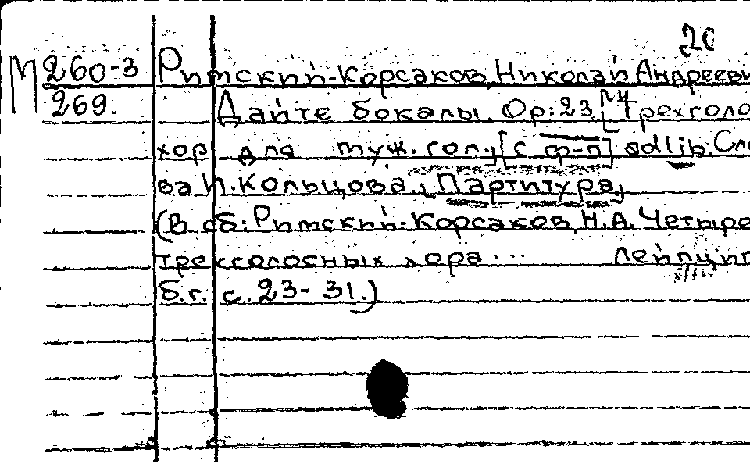 20
М 260-3 Римский-Корсаков, Николай Андрееви
269. Дайте бокалы. Ор: 23, [Трехголо
хор для муж. гол., [с ф-п] ad lib. Сло
ва И. Кольцова. Партитура,
(В сб: Римский-Корсаков, Н.А. Четыре
трехголосных хора... Лейпциг
б.г. с. 23-31.)